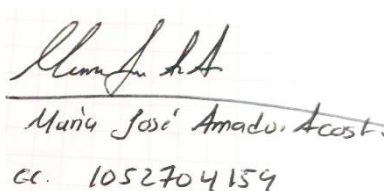 Maria José Amador Acost.
cc. 1052704159